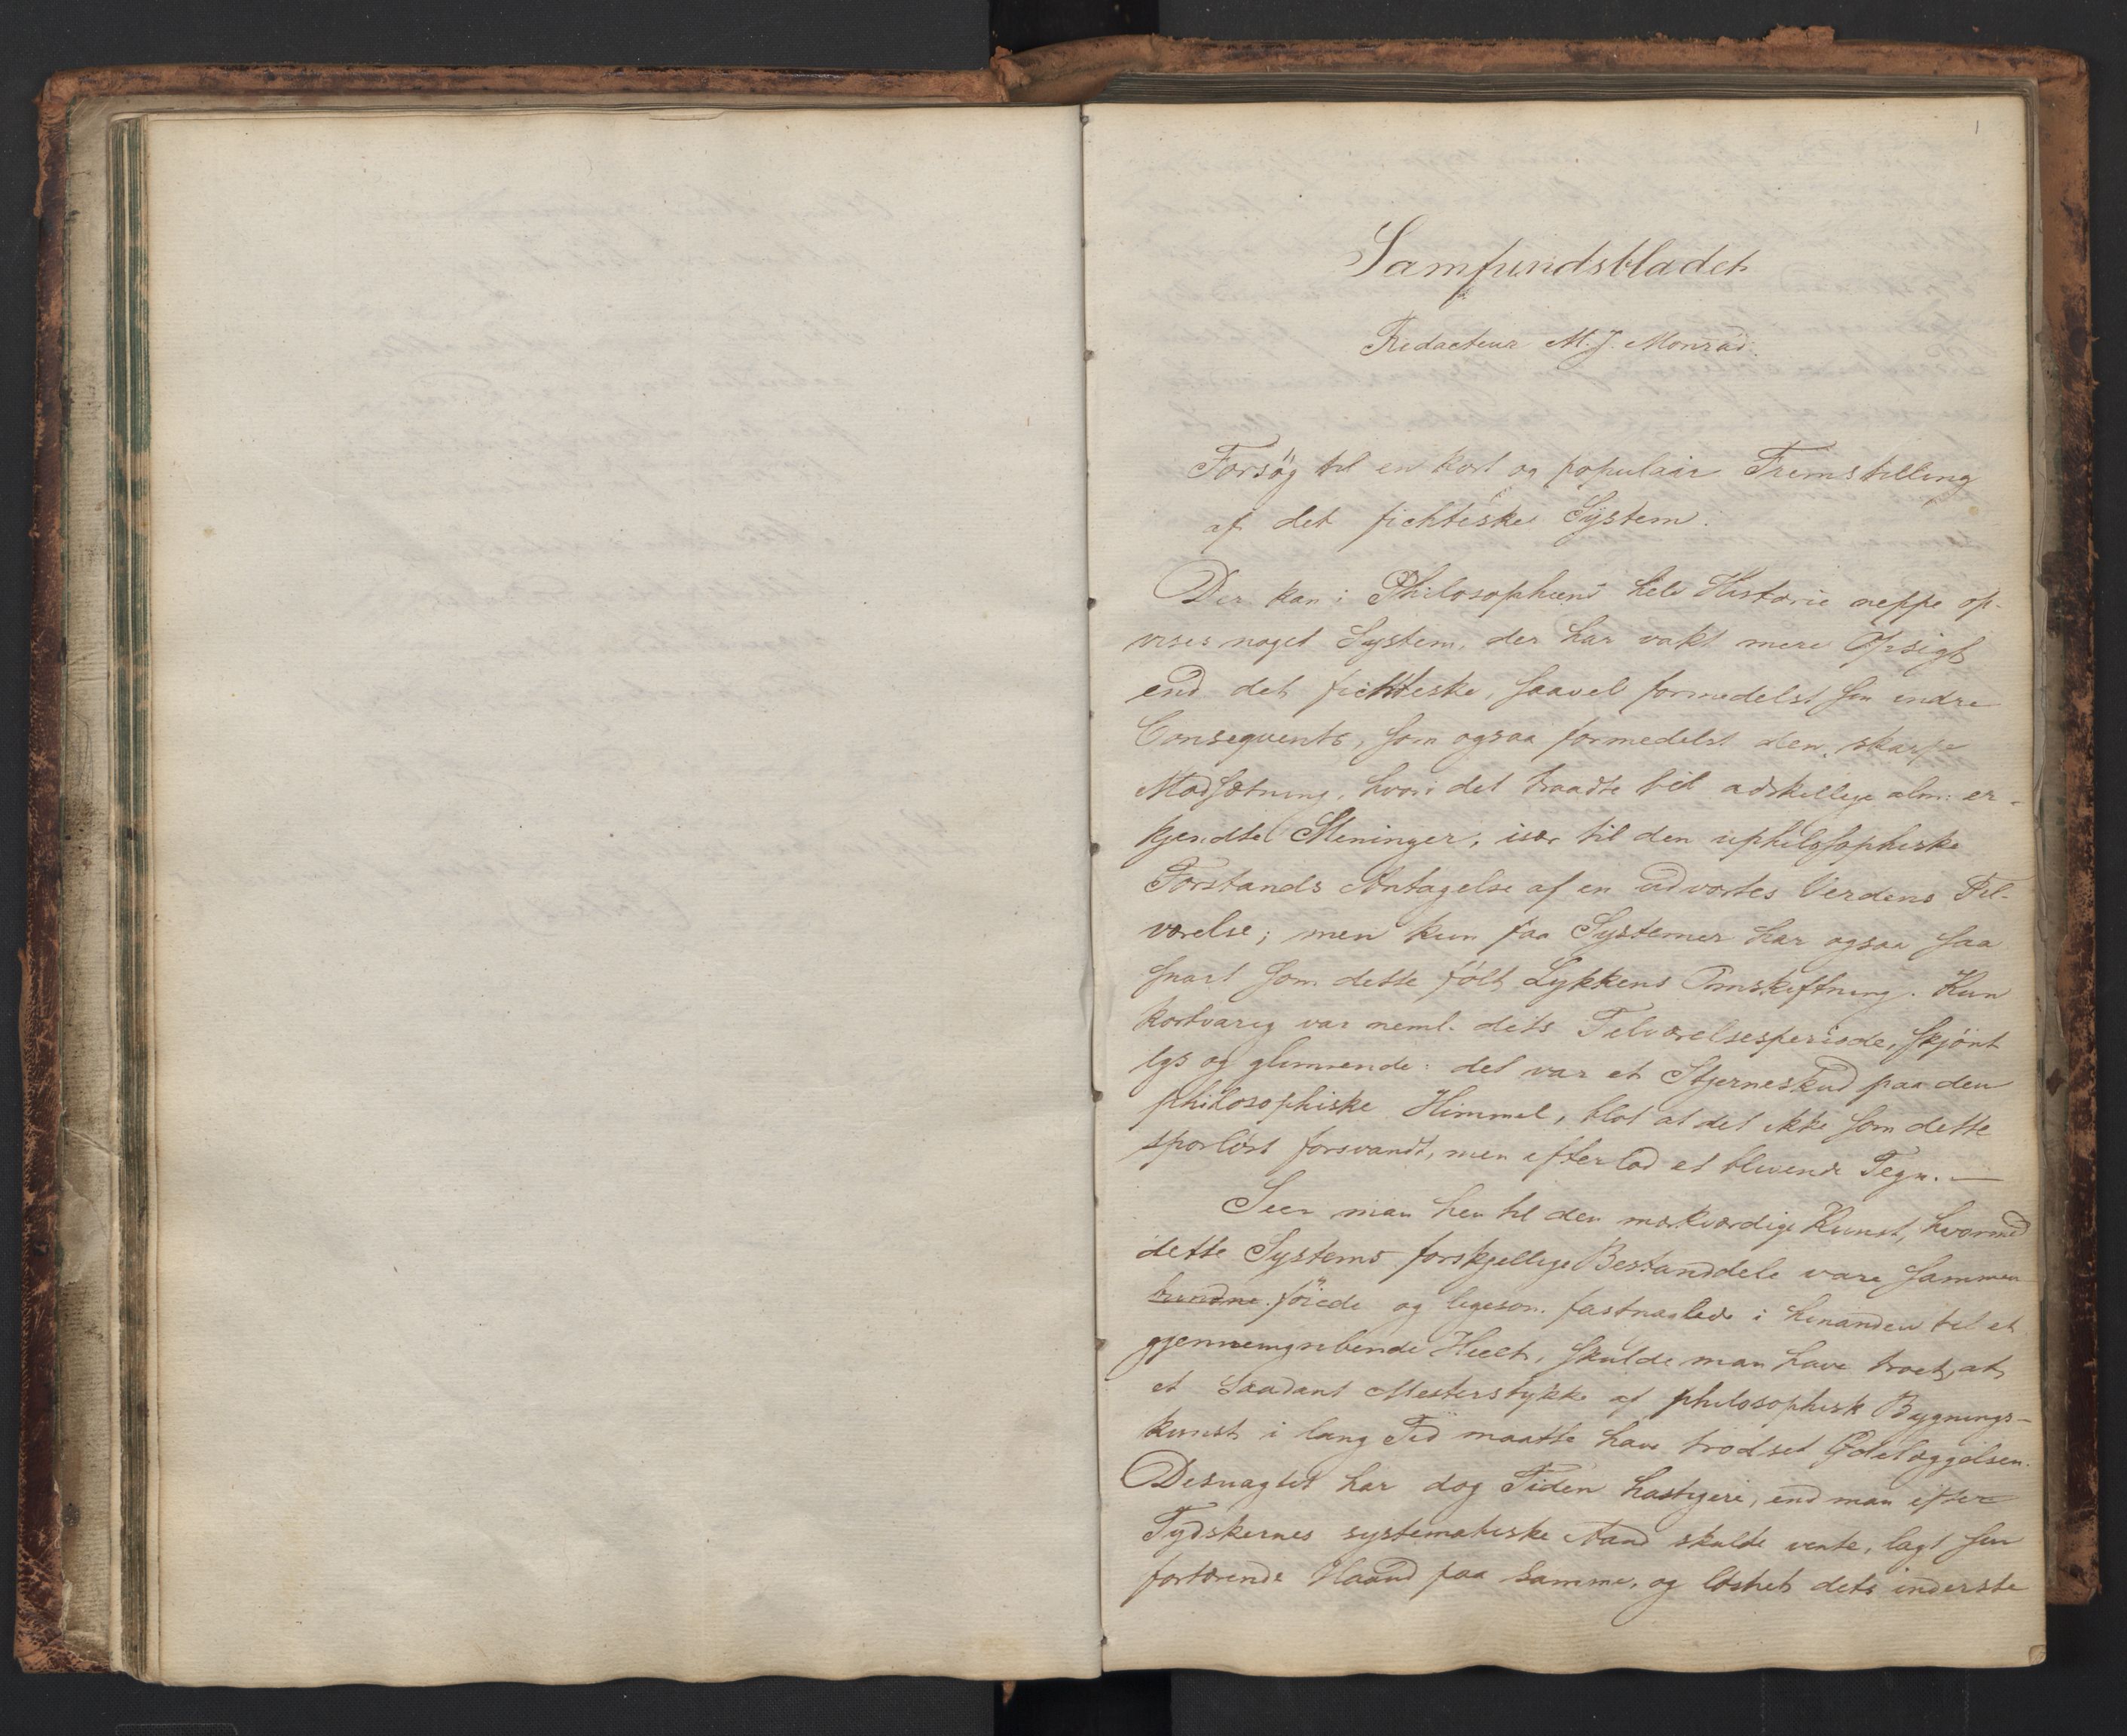 1
Samfundsbladet
Redacteur M. J. Monrad.
Forsög til en kort og populair Fremstilling
af det fichteske System.
Der kan i Philosophiens hele Historie neppe op-
vises noget System, der har vakt mere Opsigt
end det fichteske, saavel formedelst sin indre
Consequents, som ogsaa formedelst den skarpe
Modsætning, hvori det traadte til adskellige alm: er-
kjendte Meninger, især til den uphilosophiske
Forstands Antagelse af en udvortes Verdens Til-
værelse; men kun faa Systemer har ogsaa saa
snart som dette følt Lykkens Omskiftning. Kun
kortvarig var neml. dets Tilværelsesperiode, skjönt
lys og glimrende: det var et Stjerneskud paa den
philosophiske Himmel, blot at det ikke som dette
sporløst forsvandt, men efterlod et blivende Tegn. —
Seer man hen til den mærkværdige Kunst, hvormed
dette Systems forskjellige Bestanddele vare sammen
bundne föiede og ligesom fastnaglede i hinanden til et
gjennemgribende Heelt, skulde man have troet, at
et saadant Mesterstykke af philosophisk Bygnings-
kunst i lang Tid maatte have trodset Ødelæggelsen.
Desuagtet har dog Tiden hastigere, end man efter
Tydskernes systematiske Aand skulde vente, lagt sin
fortærende Haand paa samme, og løsnet dets inderste